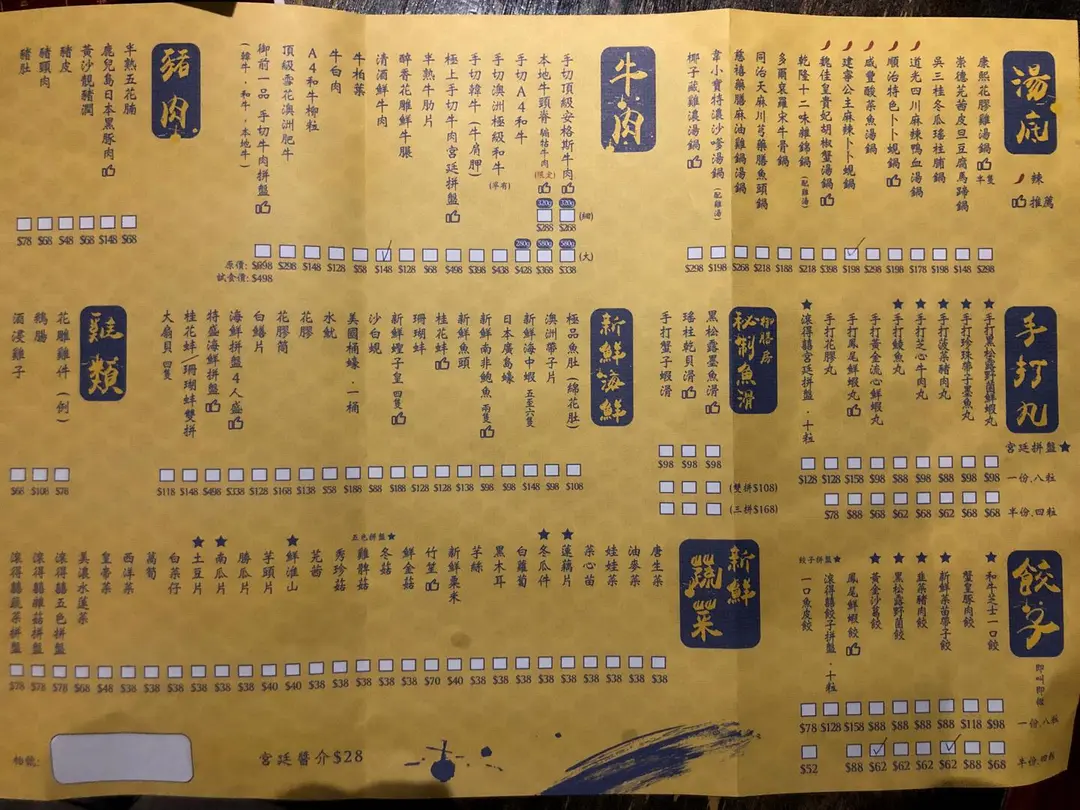 湯底
辣
推薦
康熙花膠雞湯鍋 半隻 $298
崇德芫茜皮旦豆腐馬蹄鍋 $148
吳三桂冬瓜瑤柱脯鍋 $198
道光四川麻辣鴨血湯鍋 $178
順治特色卜卜蜆鍋 $198
咸豐酸菜魚湯鍋 $298
建寧公主麻辣卜卜蜆鍋 $198
魏佳皇貴妃胡椒蟹湯鍋 $398
乾隆十二味雜錦鍋 (配雞湯) $218
多爾袞羅宋牛骨鍋 $188
同治天麻川芎藥膳魚頭鍋 $218
慈禧藥膳麻油雞鍋湯鍋 $268
韋小寶特濃沙嗲湯鍋 (配雞湯) $198
椰子葳雞濃湯鍋 $298
牛肉
手切頂級安格斯牛肉 320g $268 (細) 580g $338 (大)
本地牛頸脊 (限定) 320g $288 580g $368
手切A4和牛 280g $428
手切澳洲極級和牛 (罕有) $438
手切韓牛 (牛肩胛) $398
極上手切牛肉宮廷拼盤 $498
半熟牛肋片 $68
醉香花雕鮮牛𦟌 $128
清酒鮮牛肉 $148
牛柏葉 $58
牛白肉 $128
A4和牛柳粒 $148
頂級雪花澳洲肥牛 $298
御前一品 手切牛肉拼盤 (韓牛．和牛．本地牛)
原價: $898
試食價: $498
豬肉
半熟五花腩 $68
鹿兒島日本黑豚肉 $148
黃沙靚豬潤 $68
豬皮 $48
豬頸肉 $68
豬肚 $78
手打丸
宮廷拼盤★
一份．八粒
半份．四粒
★手打黑松露野菌鮮蝦丸 $98 $68
★手打珍珠帶子墨魚丸 $98 $68
★手打菠菜豬肉丸 $88 $62
★手打芝心牛肉丸 $98 $68
★手打鯪魚丸 $88 $62
手打黃金流心鮮蝦丸 $98 $68
手打鳳尾鮮蝦丸 $158 $88
手打花膠丸 $128 $78
★滾得囍宮廷拼盤．十粒 $128
御膳房
秘制魚滑
黑松露墨魚滑 $98
瑤柱乾貝滑 $98
手打蟹子蝦滑 $98
(雙拼$108)
(三拼$168)
新鮮海鮮
極品魚肚 (綿花肚) $108
澳洲帶子片 $98
新鮮海中蝦 五至六隻 $148
日本廣島蠔 $98
新鮮南非鮑魚 兩隻 $98
新鮮魚頭 $138
桂花蚌 $128
珊瑚蚌 $128
新鮮蟶子皇 四隻 $188
沙白蜆 $88
美國桶蠔．一桶 $188
水魷 $58
花膠 $138
花膠筒 $168
白鱔片 $128
海鮮拼盤 4人盛 $338
將盛海鮮拼盤 $498
桂花蚌/珊瑚蚌雙拼 $148
大扇貝 四隻 $118
雞類
花雕雞件 (例) $78
鵝腸 $108
酒浸雞子 $66
餃子
即叫即包
一份．八粒
半份．四粒
★和牛芝士一口餃 $98 $68
蟹皇豚肉餃 $118 $88
★新鮮菜苗帶子餃 $88 $62
★韮菜豬肉餃 $88 $62
★黑松露野菌餃 $88 $62
★黃金沙葛餃 $88 $62
鳳尾鮮蝦餃 $158 $88
餃子拼盤★
滾得囍餃子拼盤．十粒 $128
一口魚皮餃 $78 $52
新鮮蔬菜
唐生菜 $38
油麥菜 $38
娃娃菜 $38
菜心苗 $38
★蓮藕片 $38
★冬瓜件 $38
白蘿蔔 $38
黑木耳 $38
芋絲 $38
新鮮粟米 $40
竹笙 $70
鮮金菇 $38
冬菇 $38
五色拼盤★
雞髀菇 $38
秀珍菇 $38
花茜 $38
★鮮淮山 $40
芋頭片 $40
勝瓜片 $38
★南瓜片 $38
★土豆片 $38
白菜仔 $38
萵筍 $38
西洋菜 $38
皇帝菜 $48
美濃水蓮菜 $68
滾得囍五色拼盤 $78
滾得囍雜菇拼盤 $78
滾得囍蔬菜拼盤 $78
宮廷醬介$28
枱號: